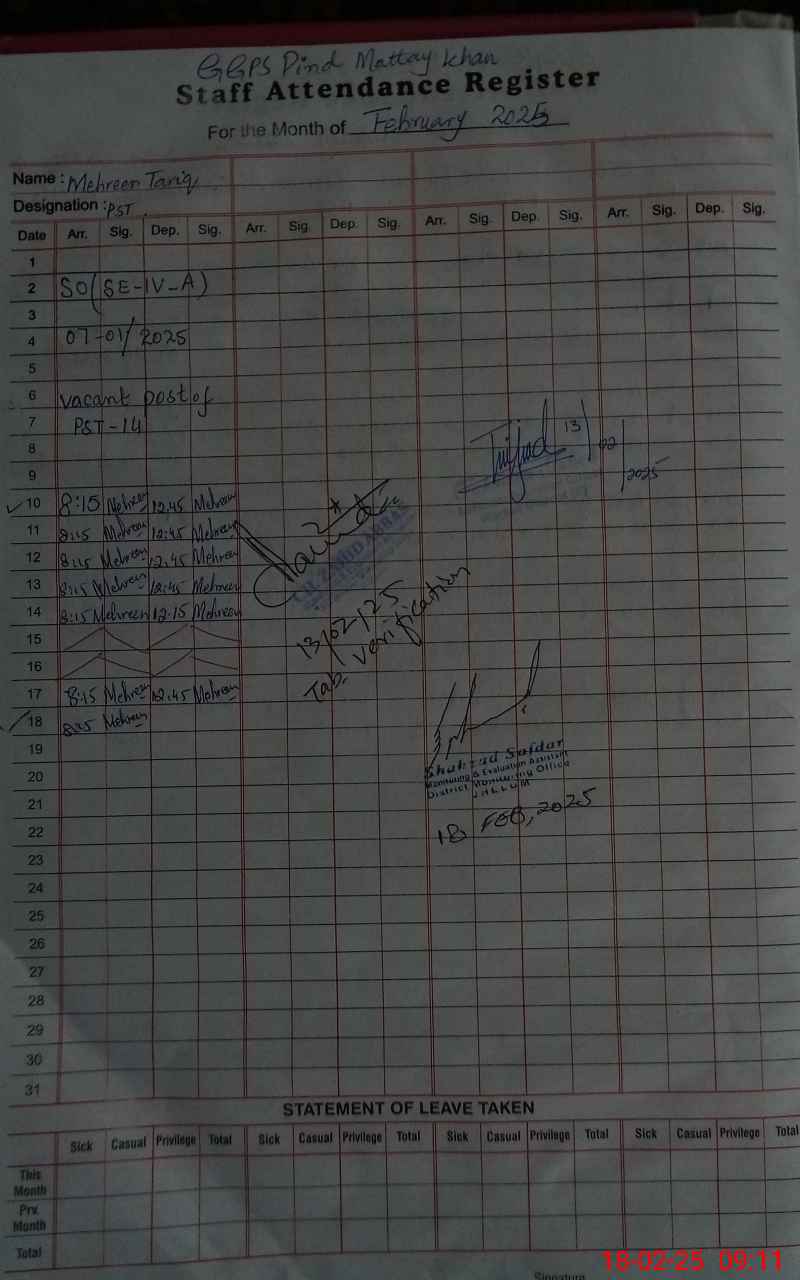 GGPS Pind Mattay Khan
Staff Attendance Register
For the Month of February 2025
Name : Mehreen Tariq
Designation : PST
Date Arr. Sig. Dep. Sig. Arr. Sig. Dep. Sig. Arr. Sig. Dep. Sig. Arr. Sig. Dep. Sig.
1
2 SO(SE-IV-A)
3
4 07-01/2025
5
6 vacant post of
7 PST-14
8
9
13/02/2025
10 8:15 Mehreen 12.45 Mehreen
11 8:15 Mehreen 12:45 Mehreen
12 8:15 Mehreen 12.45 Mehreen
13 8:15 Mehreen 12:45 Mehreen
14 8:15 Mehreen 12.15 Mehreen
15
16
13/02/25
Tab. verification
17 8:15 Mehreen 12.45 Mehreen
18 8:15 Mehreen
19
20
Shahzad Safdar
Monitoring & Evaluation Assistant
District Monitoring Office
JHELUM
18 FEB, 2025
21
22
23
24
25
26
27
28
29
30
31
STATEMENT OF LEAVE TAKEN
Sick Casual Privilege Total Sick Casual Privilege Total Sick Casual Privilege Total Sick Casual Privilege Total
This Month
Prv. Month
Total
Signature
18-02-25 09:11